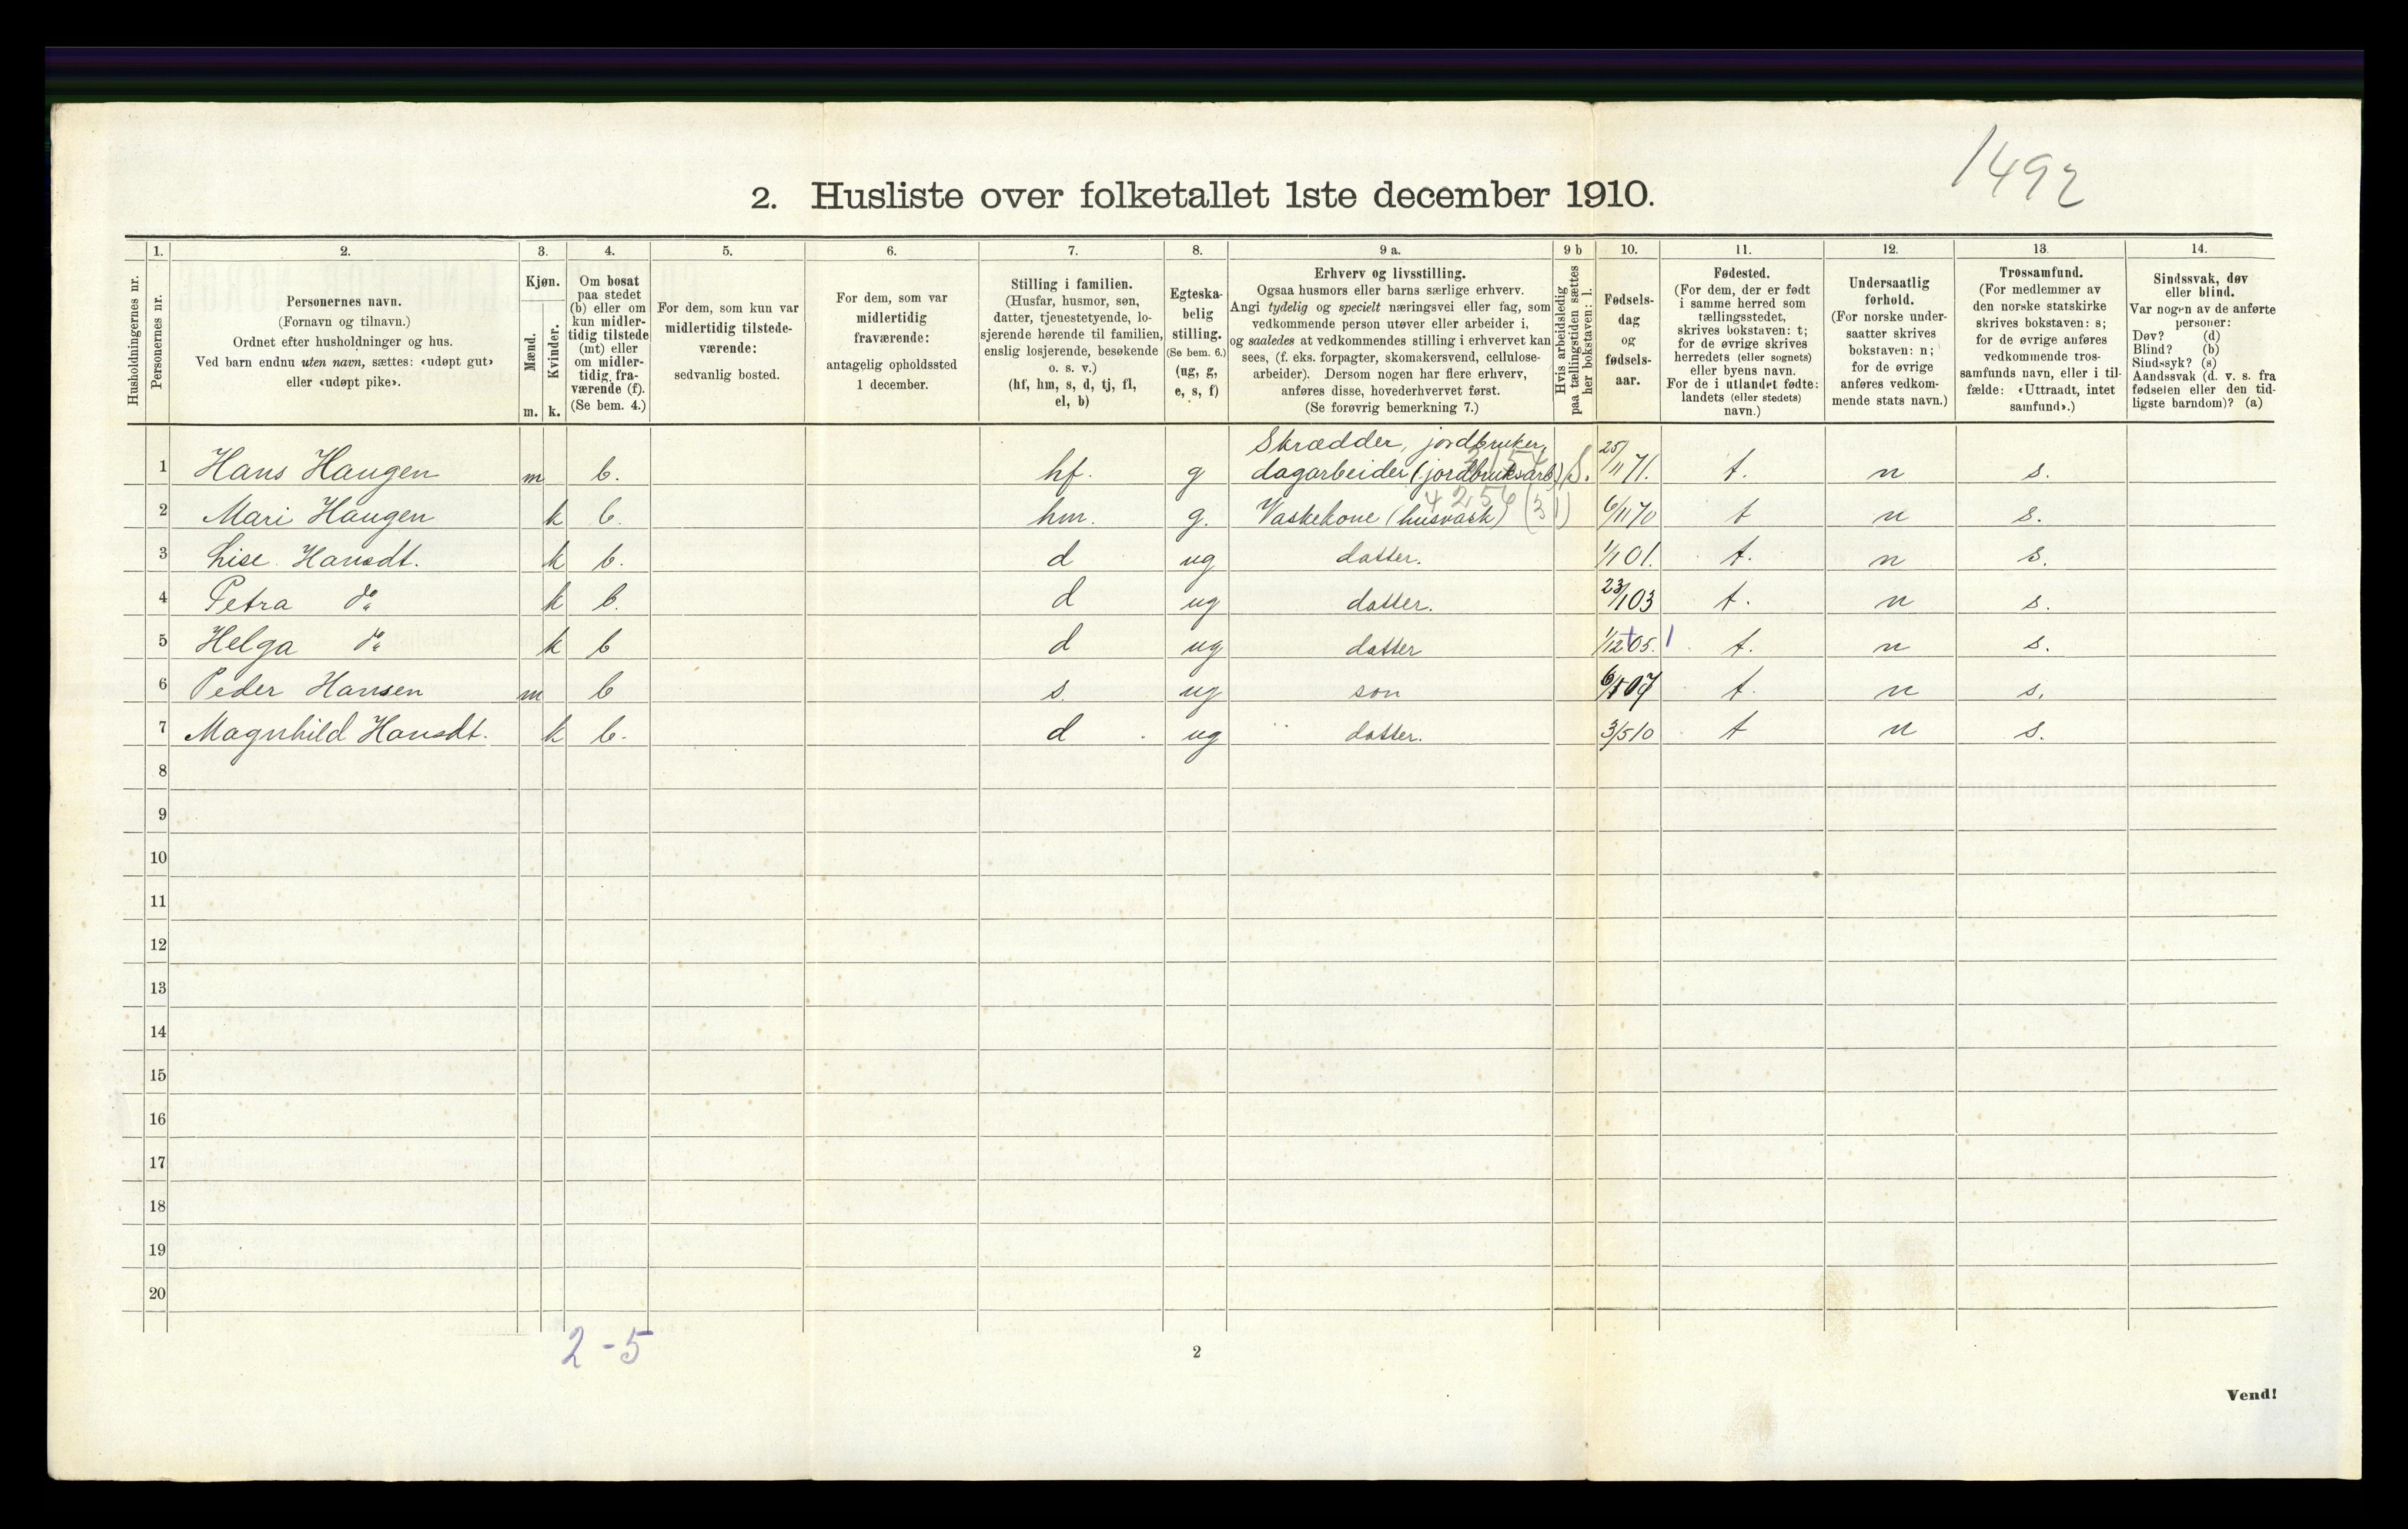 1492
2. Husliste over folketallet 1ste december 1910.
Husholdningernes nr.
1. Personernes nr.
2. Personernes navn.
(Fornavn og tilnavn.)
Ordnet efter husholdninger og hus.
Ved barn endnu uten navn, sættes: «udøpt gut»
eller «udøpt pike».
3. Kjøn.
Mænd. m.
Kvinder. k.
4. Om bosat
paa stedet
(b) eller om
kun midler-
tidig tilstede
(mt) eller
om midler-
tidig fra-
værende (f).
(Se bem. 4.)
5. For dem, som kun var
midlertidig tilstede-
værende:
sedvanlig bosted.
6. For dem, som var
midlertidig
fraværende:
antagelig opholdssted
1 december.
7. Stilling i familien.
(Husfar, husmor, søn,
datter, tjenestetyende, lo-
sjerende hørende til familien,
enslig losjerende, besøkende
o. s. v.)
(hf, hm, s, d, tj, fl,
el, b)
8. Egteska-
belig
stilling.
(Se bem. 6.)
(ug, g,
e, s, f)
9 a. Erhverv og livsstilling.
Ogsaa husmors eller barns særlige erhverv.
Angi tydelig og specielt næringsvei eller fag, som
vedkommende person utøver eller arbeider i,
og saaledes at vedkommendes stilling i erhvervet kan
sees, (f. eks. forpagter, skomakersvend, cellulose-
arbeider). Dersom nogen har flere erhverv,
anføres disse, hovederhvervet først.
(Se forøvrig bemerkning 7.)
9 b Hvis arbeidsledig
paa tællingstiden sættes
her bokstaven: l.
10. Fødsels-
dag
og
fødsels-
aar.
11. Fødested.
(For dem, der er født
i samme herred som
tællingsstedet,
skrives bokstaven: t;
for de øvrige skrives
herredets (eller sognets)
eller byens navn.
For de i utlandet fødte:
landets (eller stedets)
navn.)
12. Undersaatlig
forhold.
(For norske under-
saatter skrives
bokstaven: n;
for de øvrige
anføres vedkom-
mende stats navn.)
13. Trossamfund.
(For medlemmer av
den norske statskirke
skrives bokstaven: s;
for de øvrige anføres
vedkommende tros-
samfunds navn, eller i til-
fælde: «Uttraadt, intet
samfund».)
14. Sindssvak, døv
eller blind.
Var nogen av de anførte
personer:
Døv? (d)
Blind? (b)
Sindssyk? (s)
Aandssvak (d. v. s. fra
fødselen eller den tid-
ligste barndom)? (a)
Skrædder, jordbruker,
1 Hans Haugen m b. hf. g dagarbeider (jordbruksarb) S. 25/11 71. t. n s.
4256 (31)
2 Mari Haugen k b. hm. g. Vaskekone (husvask) 6/11 70 t n s.
3 Lise Hansdt. k b. d ug datter. 1/1 01. t. n s.
4 Petra do k b. d ug datter. 23/1 03 t. n s.
5 Helga do k b d ug datter 1/12 05. 1 t. n s.
6 Peder Hansen m b s. ug son 07 t. n s.
7 Magnhild Hansdt. k b. d ug datter. 3/5 10 t n s.
8
9
10
11
12
13
14
15
16
17
18
19
20
2-5
2
Vend!